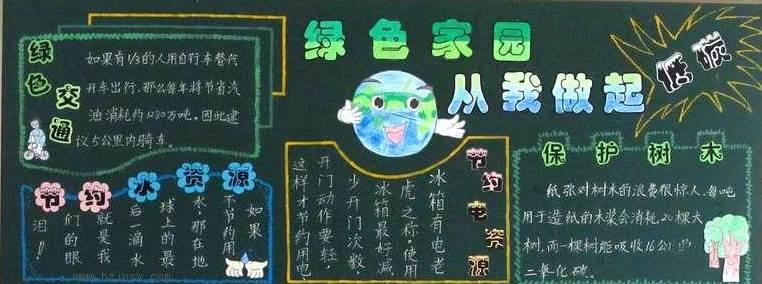 绿色家园
从我做起
低碳
绿色交通
如果有1/3的人用自行车替代
开车出行,那么每年将节省汽
油消耗约1280万吨。因此建
议5公里内骑车。
节约水资源
如果
不节约用
水,那在地
球上的最
后一滴水
就是我
们的眼
泪!!
节约电资源
冰箱有电老
虎之称。使用
冰箱最好减
少开门次数,
开门动作要轻,
这样才节约用电。
保护树木
纸张对树木的浪费很惊人,每吨
用于造纸的木浆会消耗20棵大
树,而一棵树能吸收16公斤的
二氧化碳。